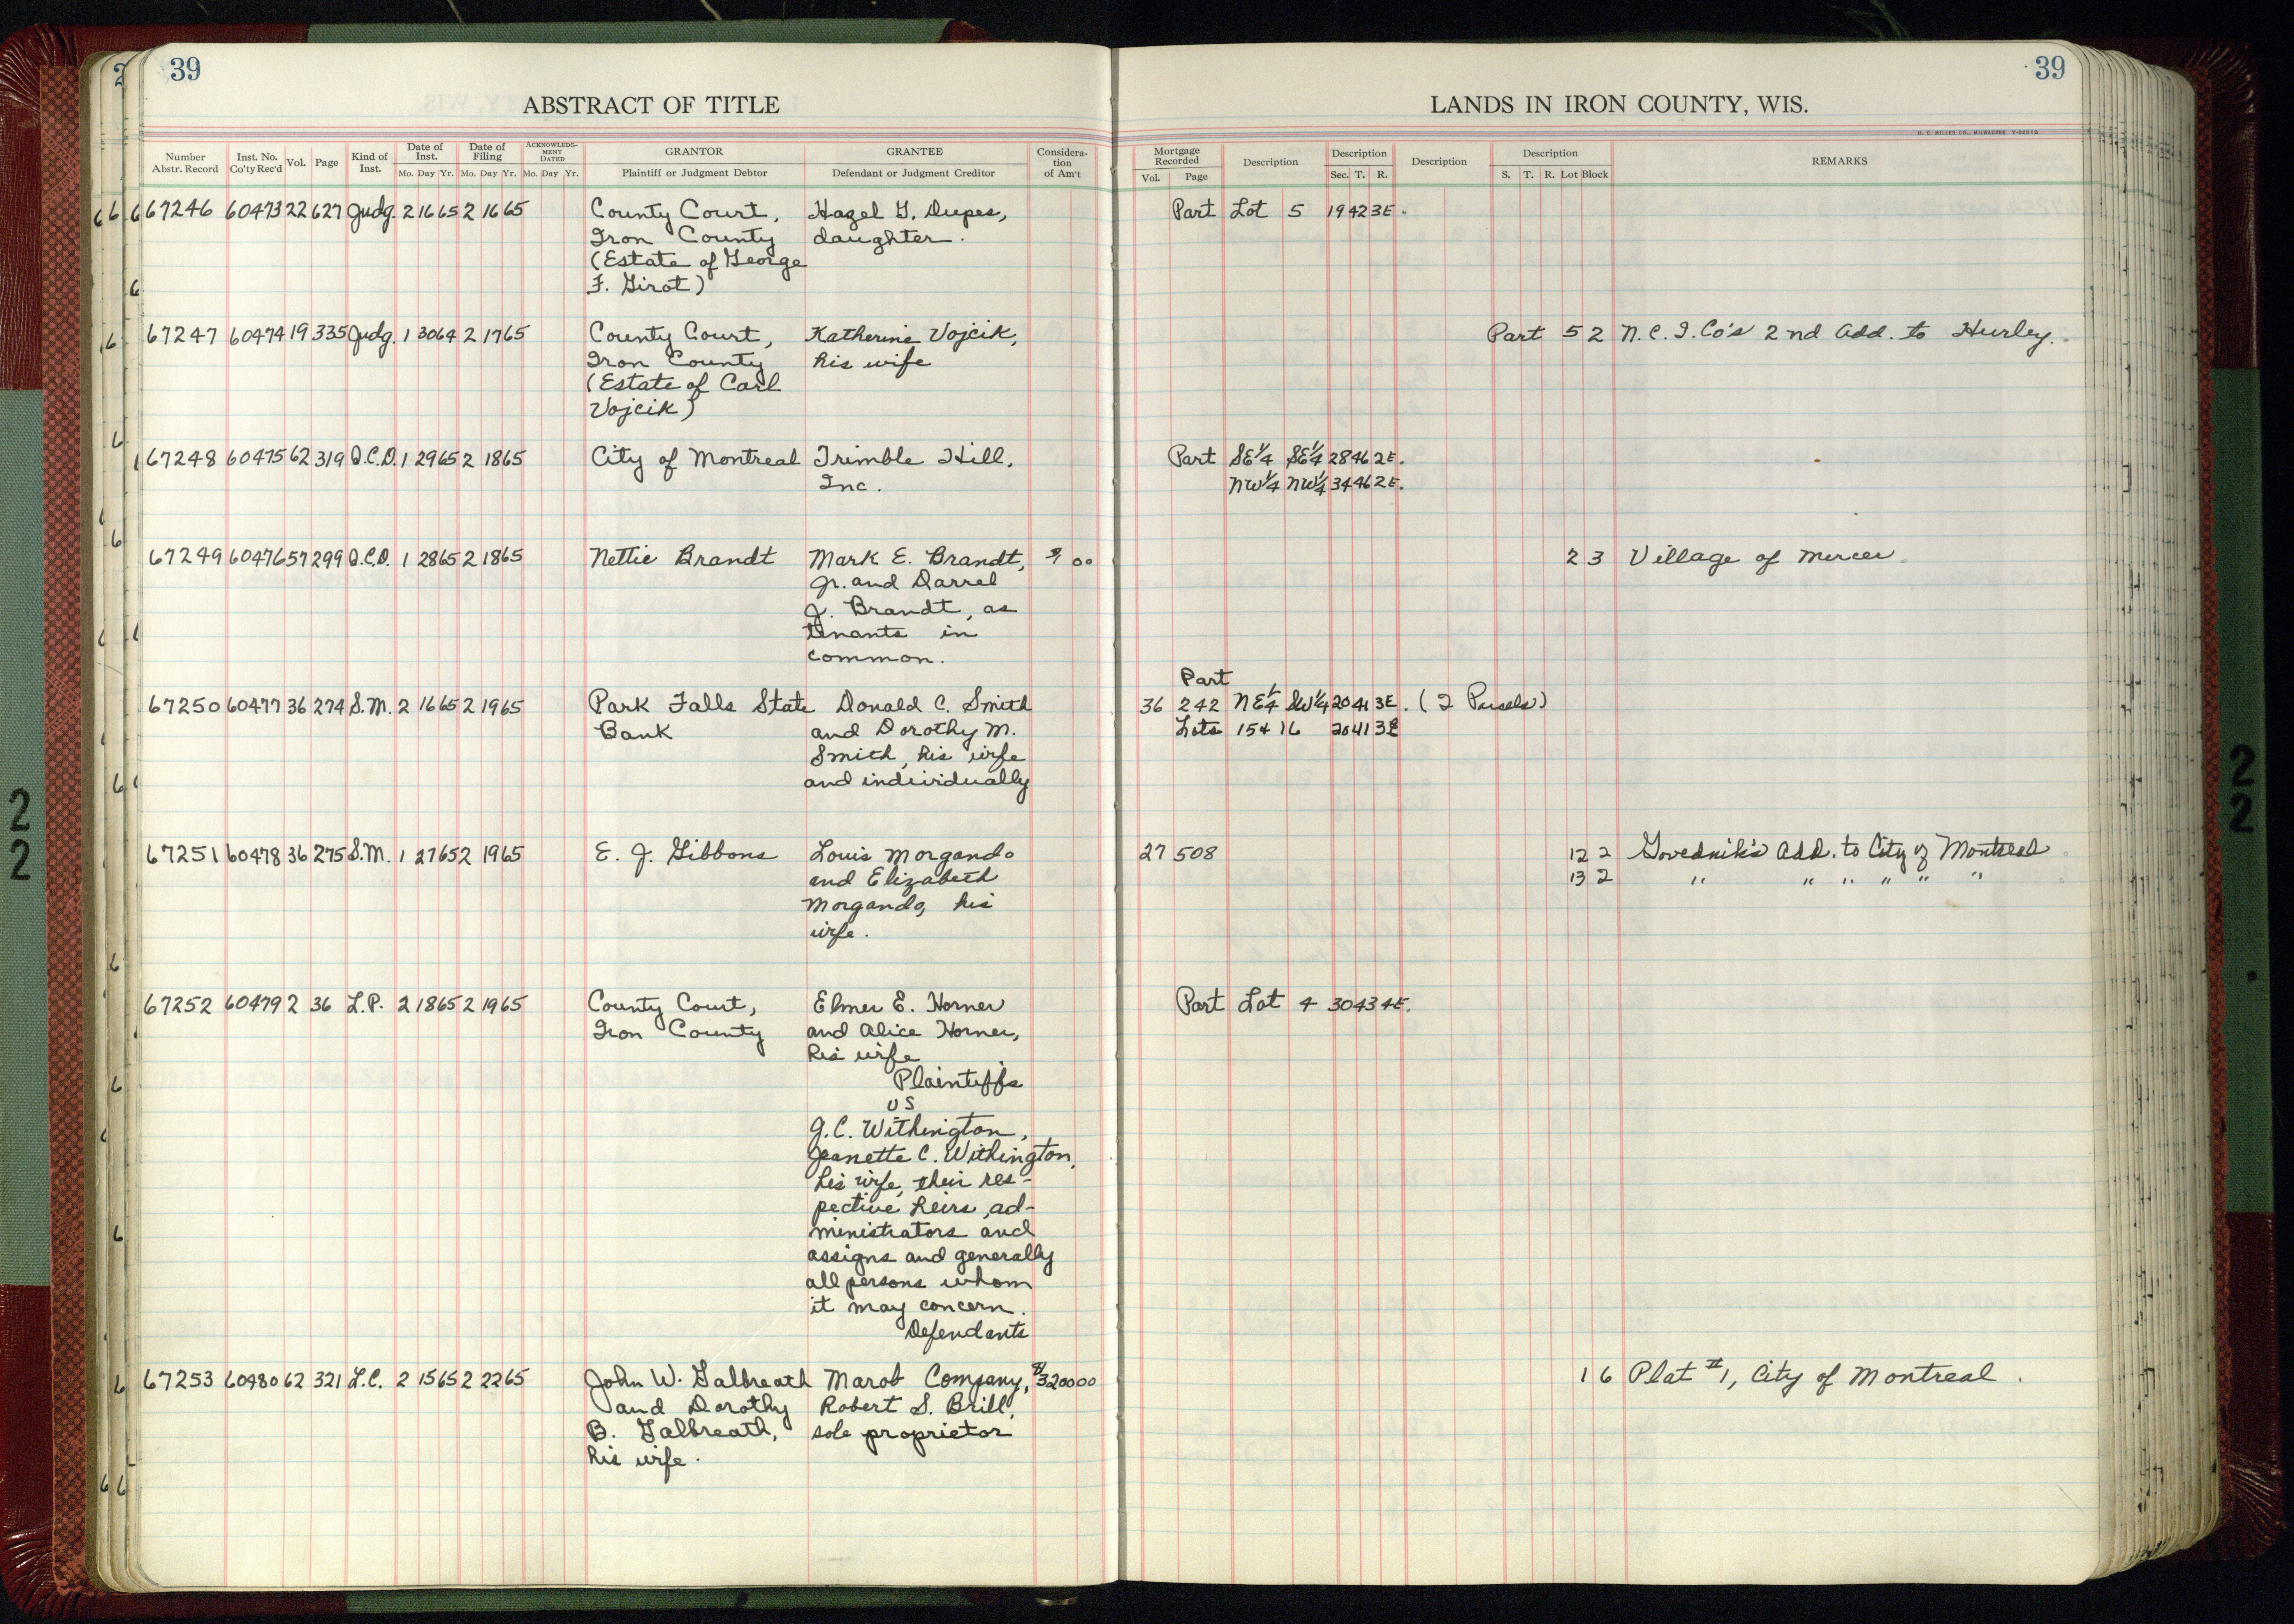 39
39
ABSTRACT OF TITLE
LANDS IN IRON COUNTY, WIS.
H. C. MILLER CO., MILWAUKEE
Number Abstr. Record Inst. No. Co'ty Rec'd Vol. Page Kind of Inst. Date of Inst. Mo. Day Yr. Date of Filing Mo. Day Yr. ACKNOWLEDGMENT DATED Mo. Day Yr. GRANTOR Plaintiff or Judgment Debtor GRANTEE Defendant or Judgment Creditor Consideration of Am't
Mortgage Recorded Vol. Page Description Description Sec. T. R. Description Description S. T. R. Lot Block REMARKS
67246 60473 22 627 Judg. 2 16 65 2 16 65 County Court, Hazel G. Dupes, Part Lot 5 19 42 3E.
Iron County daughter.
(Estate of George
F. Girot)
67247 60474 19 335 Judg. 1 30 64 2 17 65 County Court, Katherine Vojcik, Part 5 2 N.C.I. Co's 2nd Add. to Hurley.
Iron County his wife
(Estate of Carl
Vojcik)
67248 60475 62 319 Q.C.D. 1 29 65 2 18 65 City of Montreal Trimble Hill, Part SE¼ SE¼ 28 46 2E.
Inc. NW¼ NW¼ 34 46 2E.
67249 60476 57 299 Q.C.D. 1 28 65 2 18 65 Nettie Brandt Mark E. Brandt, $1 00 2 3 Village of Mercer.
Jr. and Darrel
J. Brandt, as
tenants in
common.
Part
67250 60477 36 274 S.M. 2 16 65 2 19 65 Park Falls State Donald C. Smith 36 242 NE¼ SW¼ 20 41 3E. (2 Parcels)
Bank and Dorothy M. Lots 15+16 20 41 3E
Smith, his wife
and individually
67251 60478 36 275 S.M. 1 27 65 2 19 65 E. J. Gibbons Louis Morgando 27 508 12 2 Govednik's Add. to City of Montreal
and Elizabeth 13 2 " " " " " "
Morgando, his
wife.
67252 60479 2 36 L.P. 2 18 65 2 19 65 County Court, Elmer E. Horner Part Lot 4 30 43 4E.
Iron County and Alice Horner,
his wife
Plaintiffs
vs
J.C. Withington,
Jeanette C. Withington,
his wife, their res-
pective heirs, ad-
ministrators and
assigns and generally
all persons whom
it may concern.
Defendants
67253 60480 62 321 L.C. 2 15 65 2 22 65 John W. Galbreath Marob Company, $3200 00 1 6 Plat #1, City of Montreal.
and Dorothy Robert S. Brill,
B. Galbreath, sole proprietor
his wife.
2
2
2
2